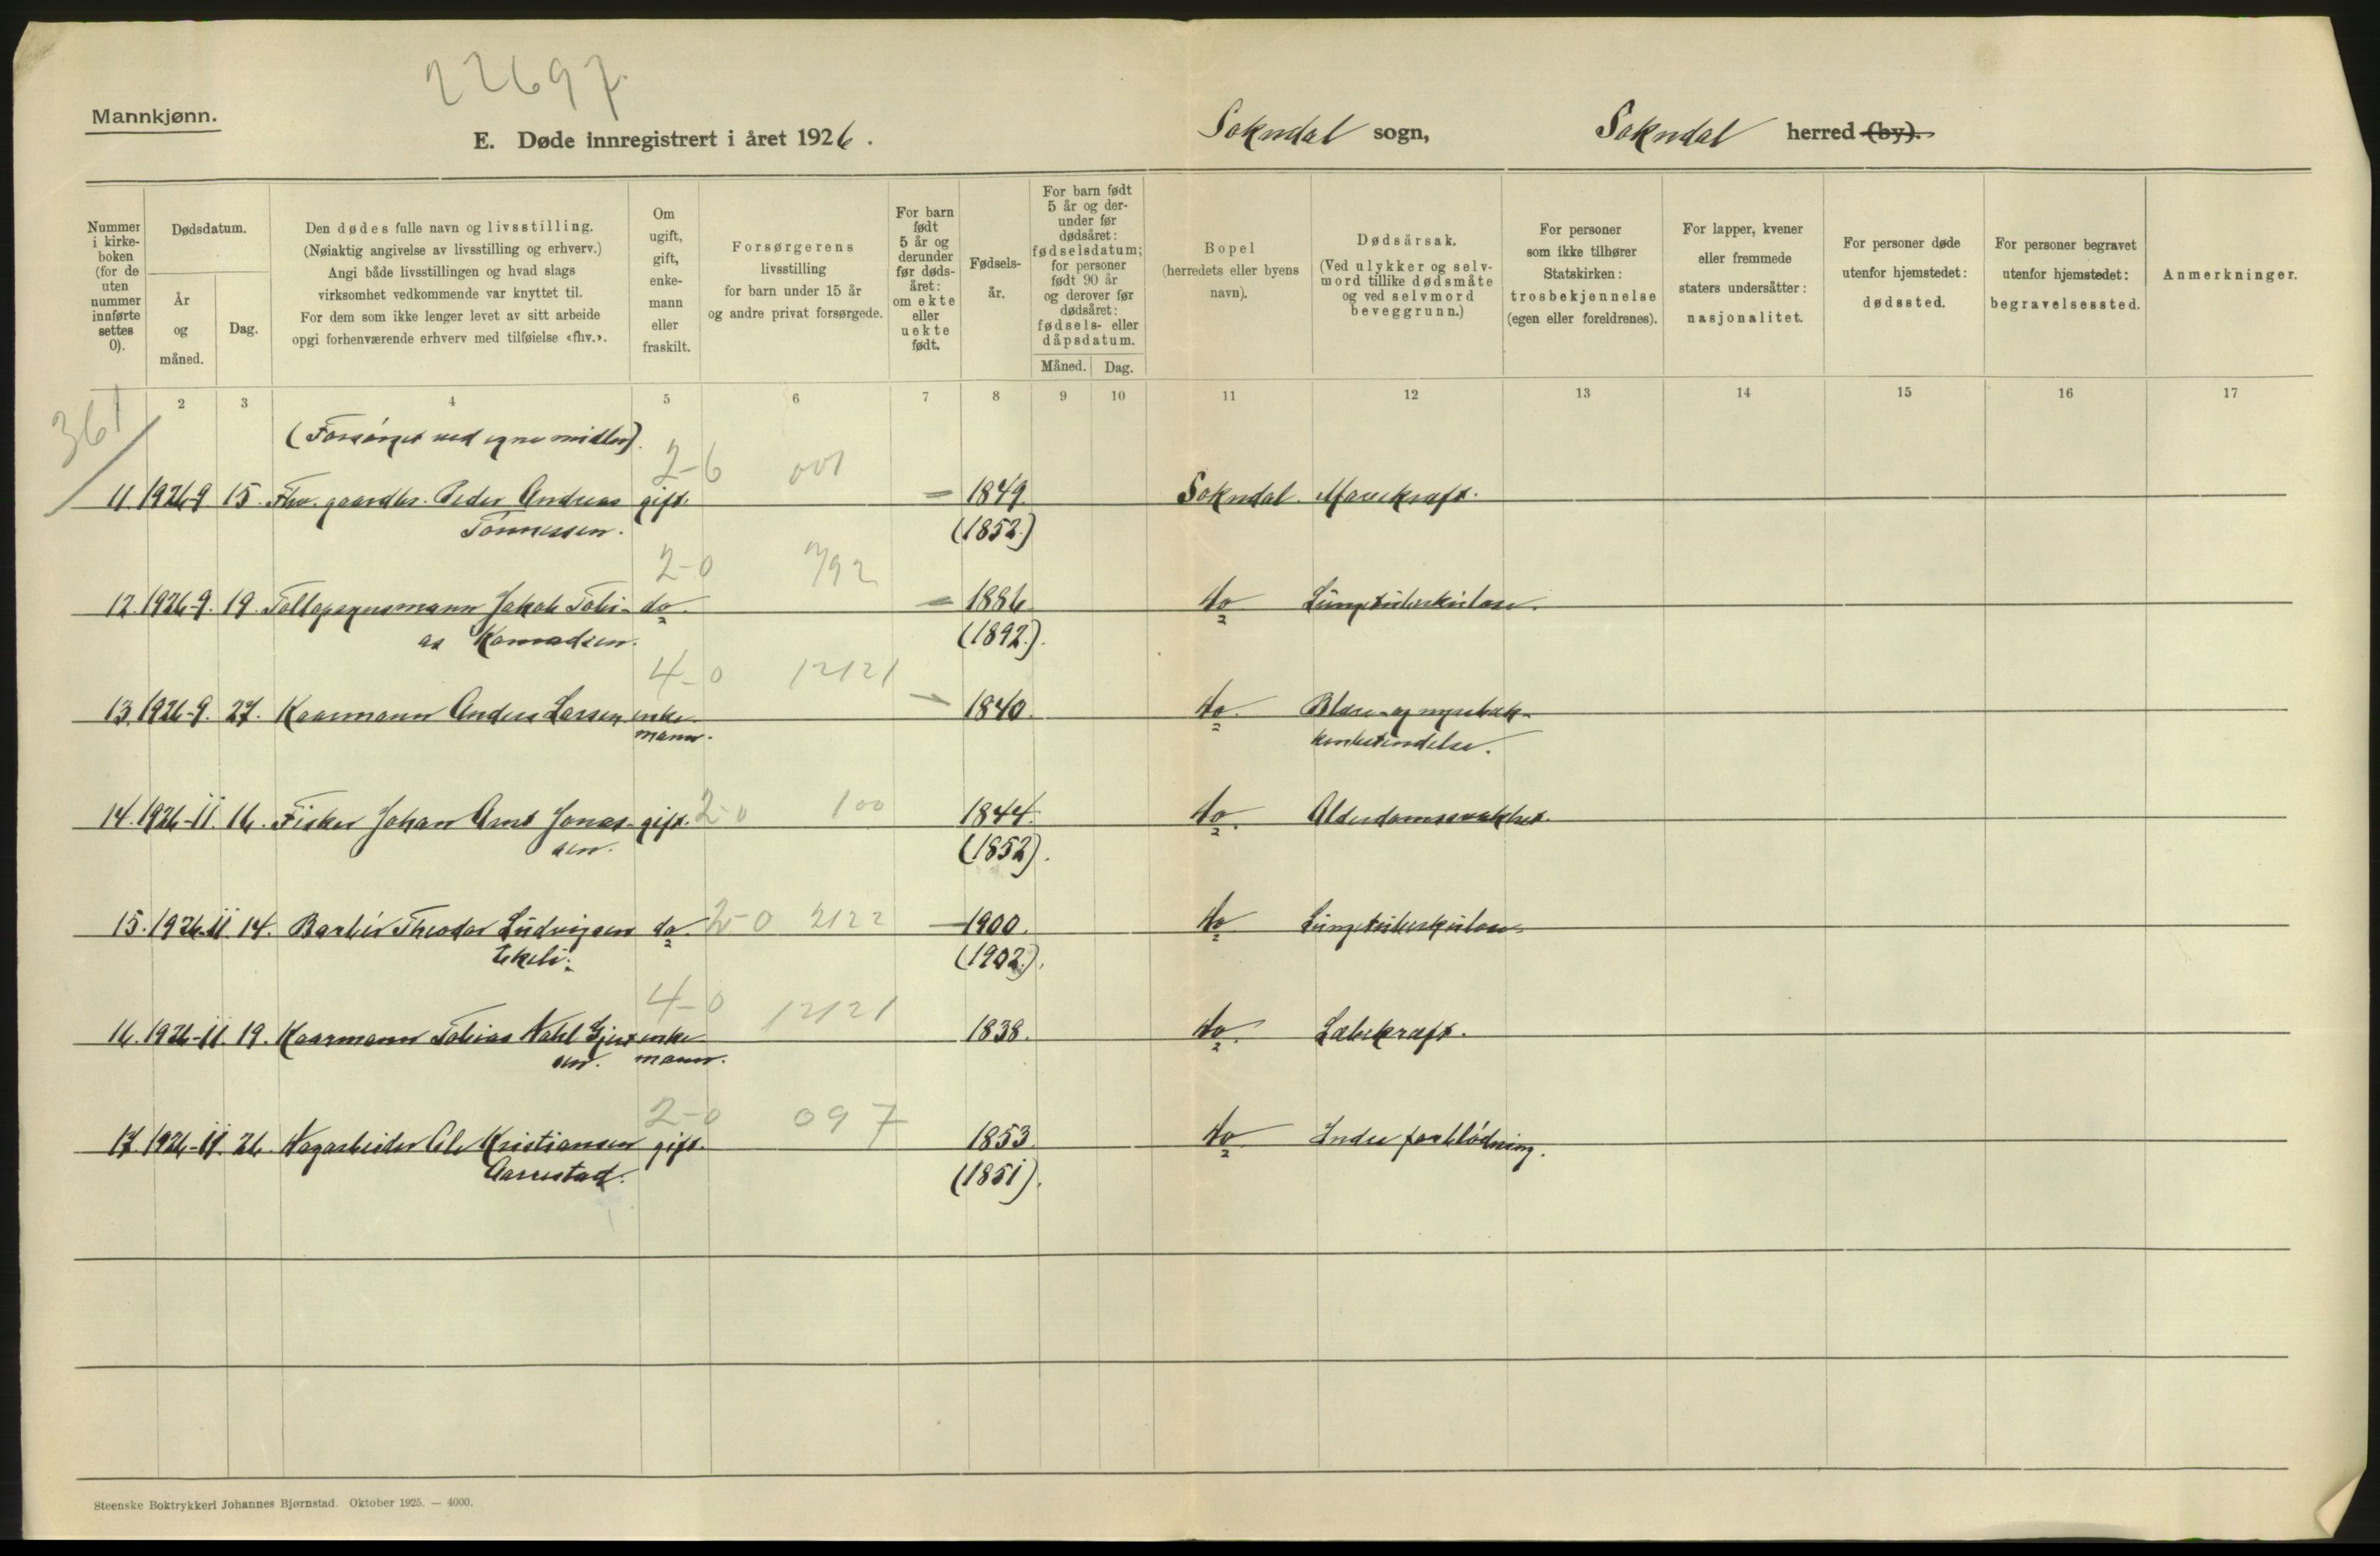 22697.
Mannkjønn.
E. Døde innregistrert i året 1926.
Sokndal sogn,
Sokndal herred (by).
Nummer i kirkeboken (for de uten nummer innførte settes 0).
Dødsdatum.
År og måned.
Dag.
Den dødes fulle navn og livsstilling.
(Nøiaktig angivelse av livsstilling og erhverv.)
Angi både livsstillingen og hvad slags
virksomhet vedkommende var knyttet til.
For dem som ikke lenger levet av sitt arbeide
opgi forhenværende erhverv med tilføielse «fhv.».
Om ugift, gift, enkemann eller fraskilt.
Forsørgerens
livsstilling
for barn under 15 år
og andre privat forsørgede.
For barn født 5 år og derunder før dødsåret: om ekte eller uekte født.
Fødselsår.
For barn født
5 år og derunder før
dødsåret:
fødselsdatum;
for personer
født 90 år
og derover før
dødsåret:
fødsels- eller
dåpsdatum.
Måned. Dag.
Bopel
(herredets eller byens
navn).
Dødsårsak.
(Ved ulykker og selvmord tillike dødsmåte
og ved selvmord
beveggrunn.)
For personer
som ikke tilhører
Statskirken:
trosbekjennelse
(egen eller foreldrenes).
For lapper, kvener
eller fremmede
staters undersåtter:
nasjonalitet.
For personer døde
utenfor hjemstedet:
dødssted.
For personer begravet
utenfor hjemstedet:
begravelsessted.
Anmerkninger.
1 2 3 4 5 6 7 8 9 10 11 12 13 14 15 16 17
361
(Forsørget ved egne midler).
2-6 001
11. 1926-9 15. Fhv. gaardbr. Peder Andreas gift. 1849 Sokndal. Marekraft.
Tönnessen. (1852)
2-0 792
12. 1926-9. 19. Tollopsynsmann Jakob Tobi- do. 1886 do Lungetuberkulose.
as Konradsen. (1892.).
4-0 12121
13. 1926-9. 27. Kaarmann Anders Larsen enke- 1840. do. Blære- og nyrebæk-
mann. kenbetendelse.
14. 1926-11. 16. Fisker Johan Arnt Jonas- gift. 2-0 100 1844. do. Alderdomssvakhet.
sen. (1852).
15. 1926-11. 14. Barbér Theodor Ludvigsen do. 2-0 2122 1900. do Lungetuberkulose.
Ekeli. (1902.).
4-0 12121
16. 1926-11. 19. Kaarmann Tobias Vahl Gjert- enke- 1838. do. Læbekræft.
sen. mann.
2-0 097
17. 1926-11. 26. Vegarbeider Ole Kristiansen gift. 1853 do Indre forblödning.
Aarrestad. (1851).
Steenske Boktrykkeri Johannes Bjørnstad. Oktober 1925. — 4000.